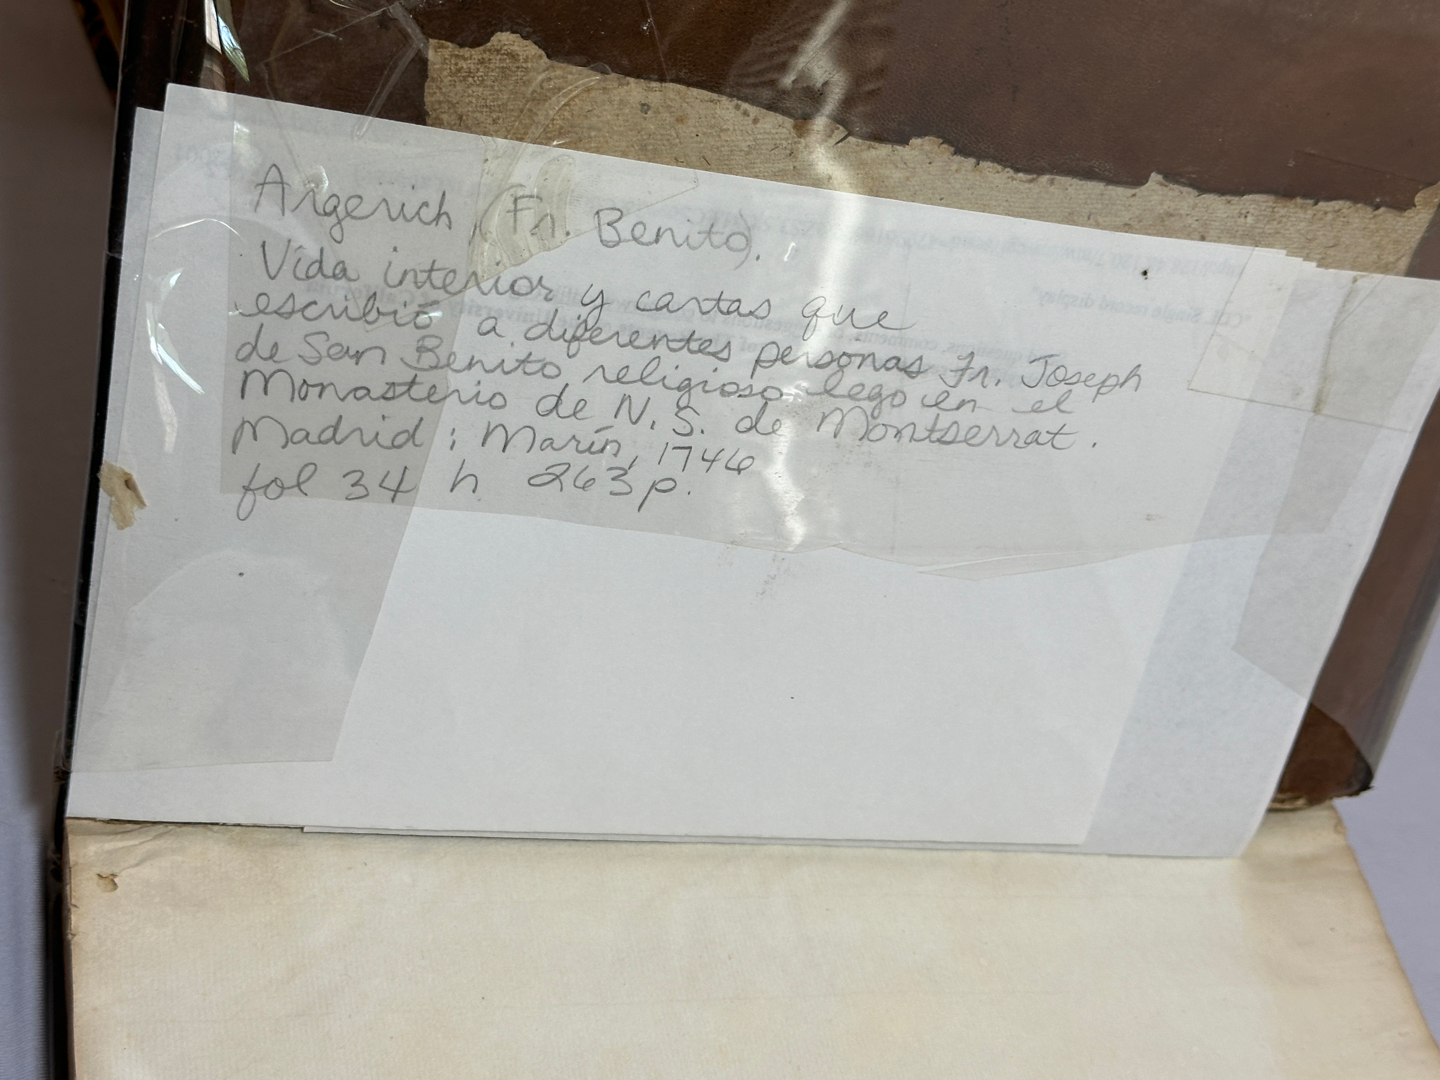 Argerich, (Fr. Benito).
Vida interior y cartas que
escribió a diferentes personas Fr. Joseph
de San Benito religioso lego en el
Monasterio de N. S. de Montserrat.
Madrid : Marín, 1746
fol 34 h 263 p.
"CDL Single record display"